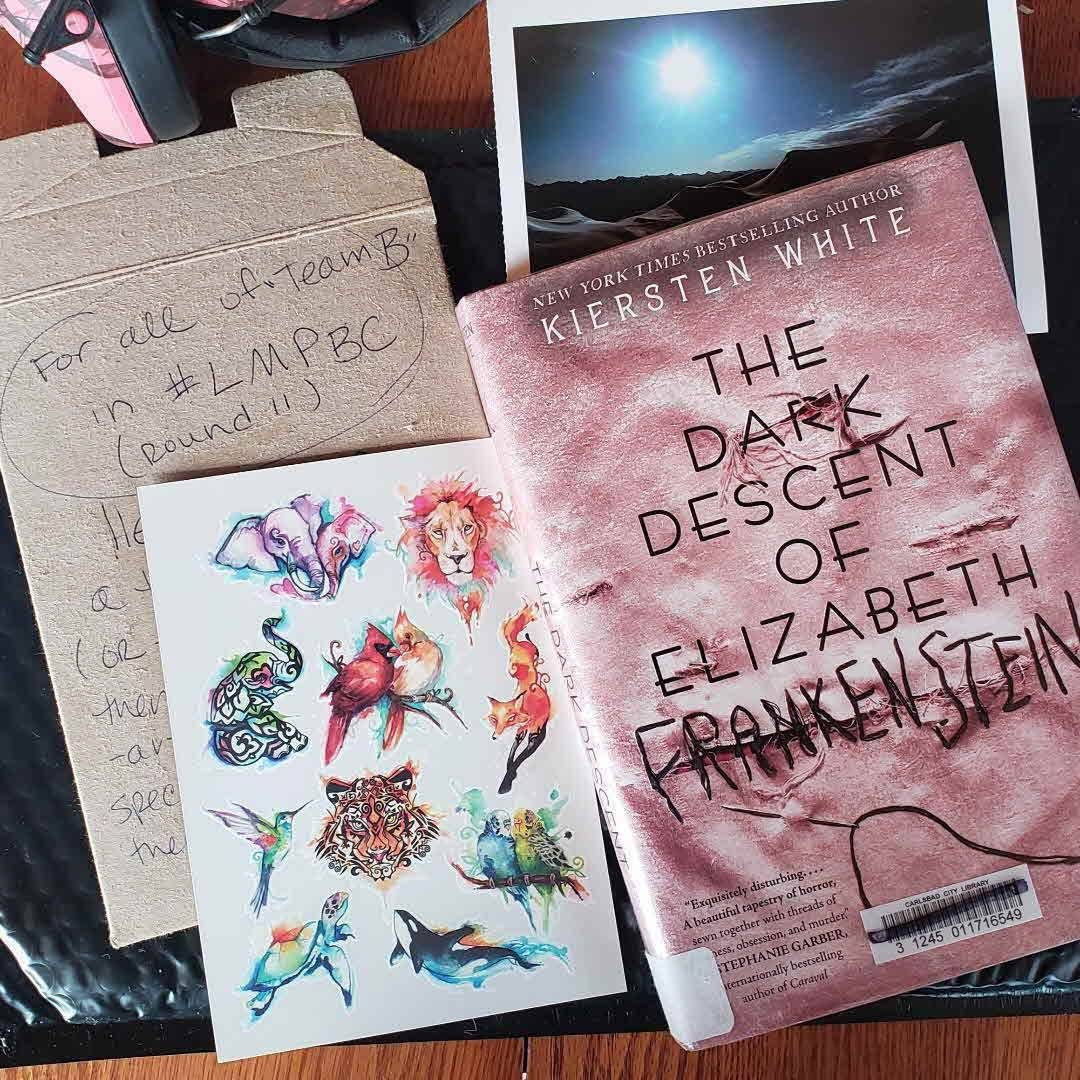 For all of "Team B"
in #LMPBC
(round 11)
a
(or
spec
NEW YORK TIMES BESTSELLING AUTHOR
KIERSTEN WHITE
THE
DARK
DESCENT
OF
ELIZABETH
FRANKENSTEIN
"Exquisitely disturbing. . . .
A beautiful tapestry of horror,
sewn together with threads of
obsession, and murder."
STEPHANIE GARBER,
internationally bestselling
author of Caraval
CARLSBAD CITY LIBRARY
3 1245 011716549
THE DARK DESCENT